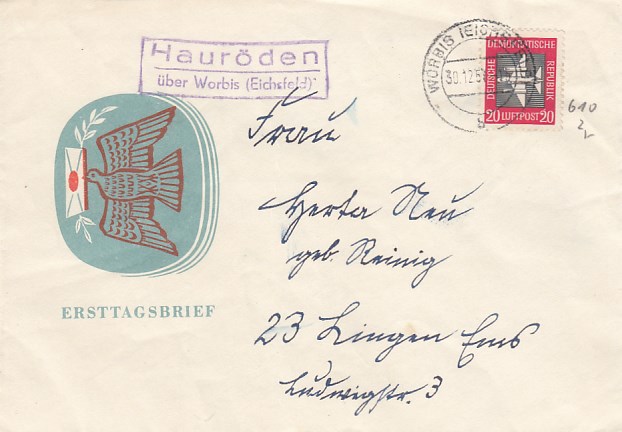 Hauröden
über Worbis (Eichsfeld)
WORBIS (EICHSF
30.12.5
b
DEMOKRATISCHE
DEUTSCHE
REPUBLIK
20 LUFTPOST 20
610
Frau
Herta Neu
geb. Reinig
ERSTTAGSBRIEF
23 Lingen Ems
Ludwigstr. 3